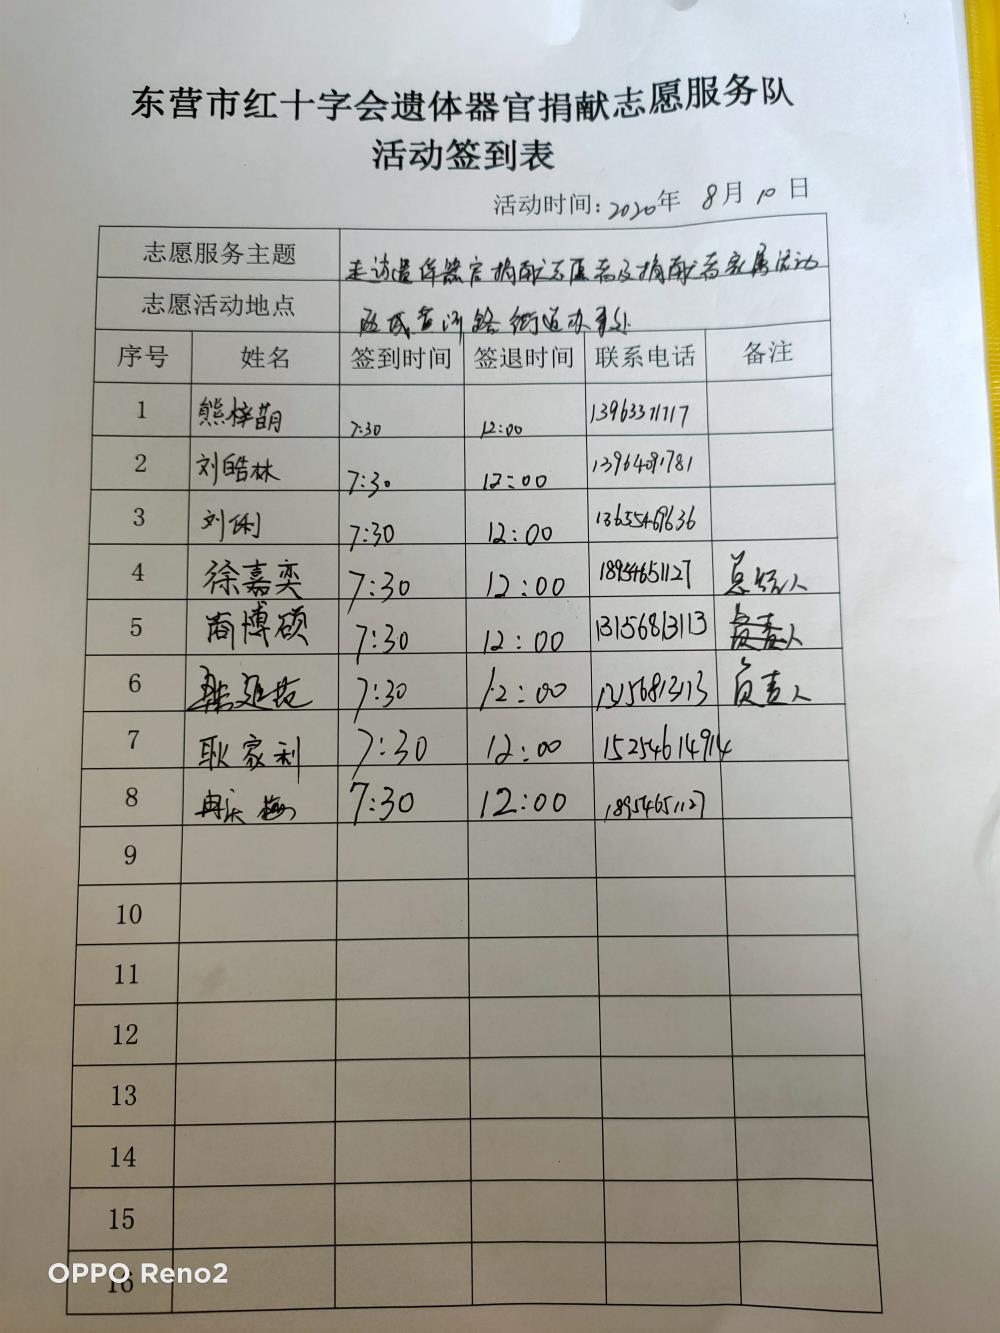 东营市红十字会遗体器官捐献志愿服务队
活动签到表
活动时间:2020年 8月10日
志愿服务主题 走访遗体器官捐献志愿者及捐献者家属活动
志愿活动地点 街道办事处
序号 姓名 签到时间 签退时间 联系电话 备注
1 熊梓萌 7:30 12:00 13963371717
2 刘皓林 7:30 12:00 13964091781
3 刘俐 7:30 12:00 13655469636
4 徐嘉奕 7:30 12:00 18954651127 总负责人
5 商博硕 7:30 12:00 13156813113 负责人
6 7:30 12:00 13156813113 负责人
7 耿家利 7:30 12:00 15254614914
8 冉庆梅 7:30 12:00 18954651127
9
10
11
12
13
14
15
16
OPPO Reno2